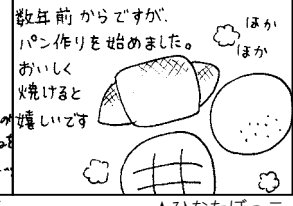 数年前からですが、
パン作りを始めました。
おいしく
焼けると
嬉しいです
ほか
ほか